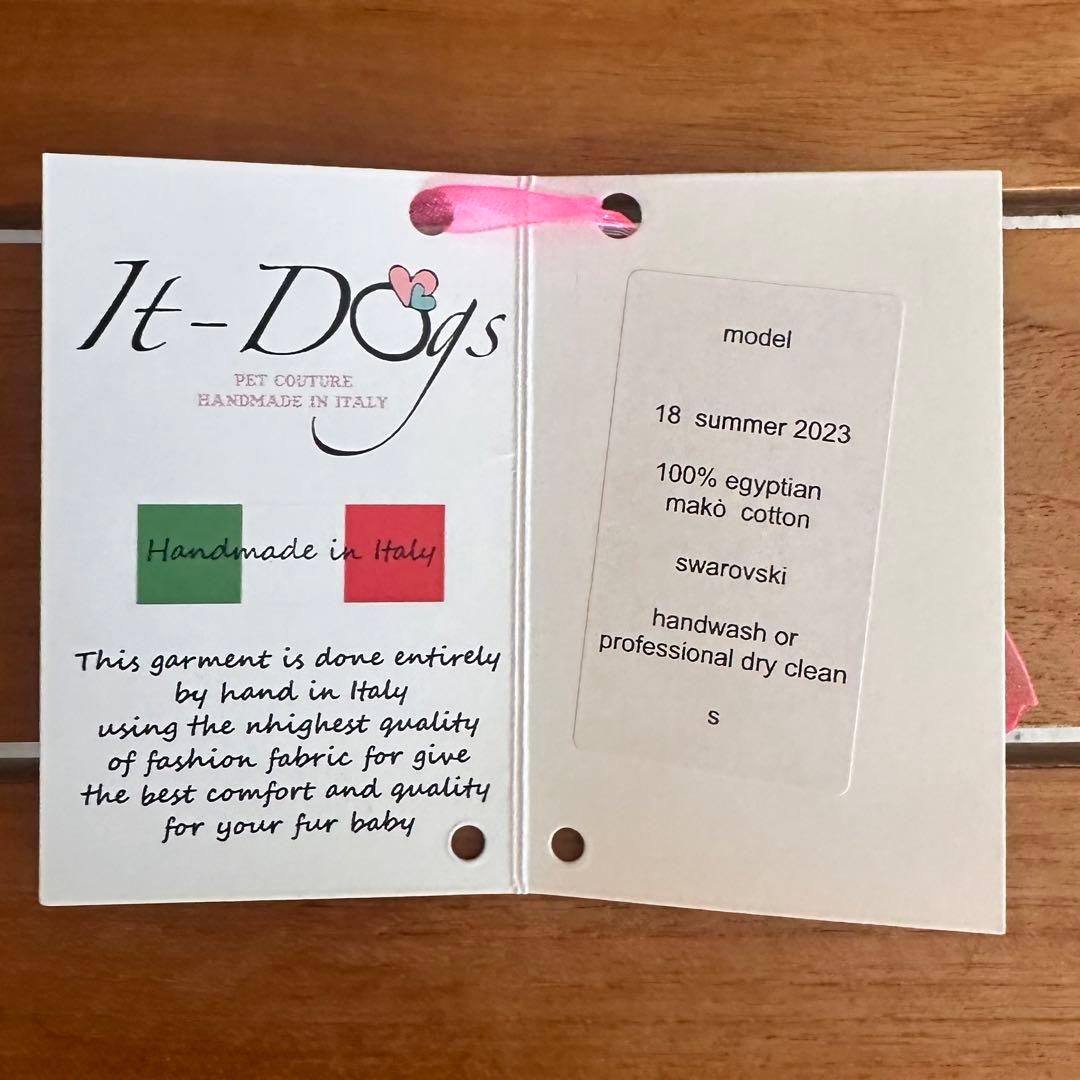 It-Dogs
PET COUTURE
HANDMADE IN ITALY
Handmade in Italy
This garment is done entirely
by hand in Italy
using the nhighest quality
of fashion fabric for give
the best comfort and quality
for your fur baby
model
18 summer 2023
100% egyptian
makò cotton
swarovski
handwash or
professional dry clean
s